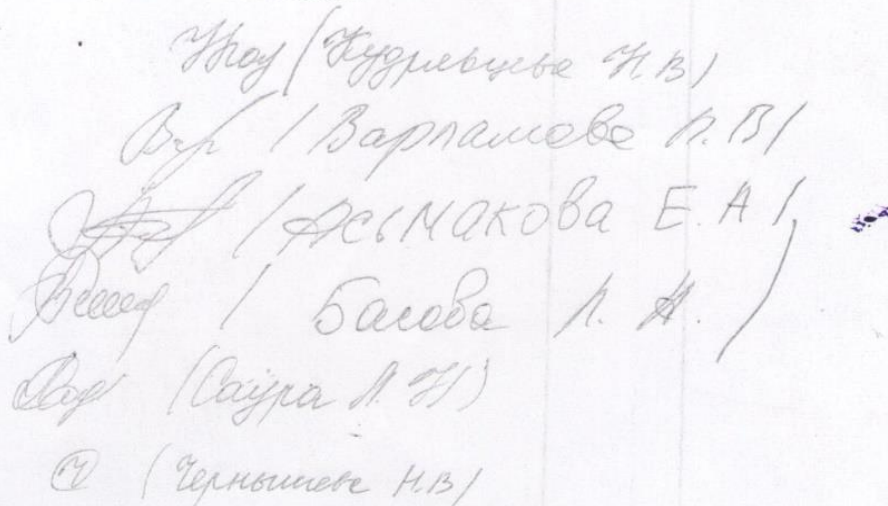 (Кудрявцева Н.В)
/ Варламова Л.В/
/ Асымакова Е.А/
/ Басова Л.Н.)
(Саура Л.Н)
(Чернышева Н.В/